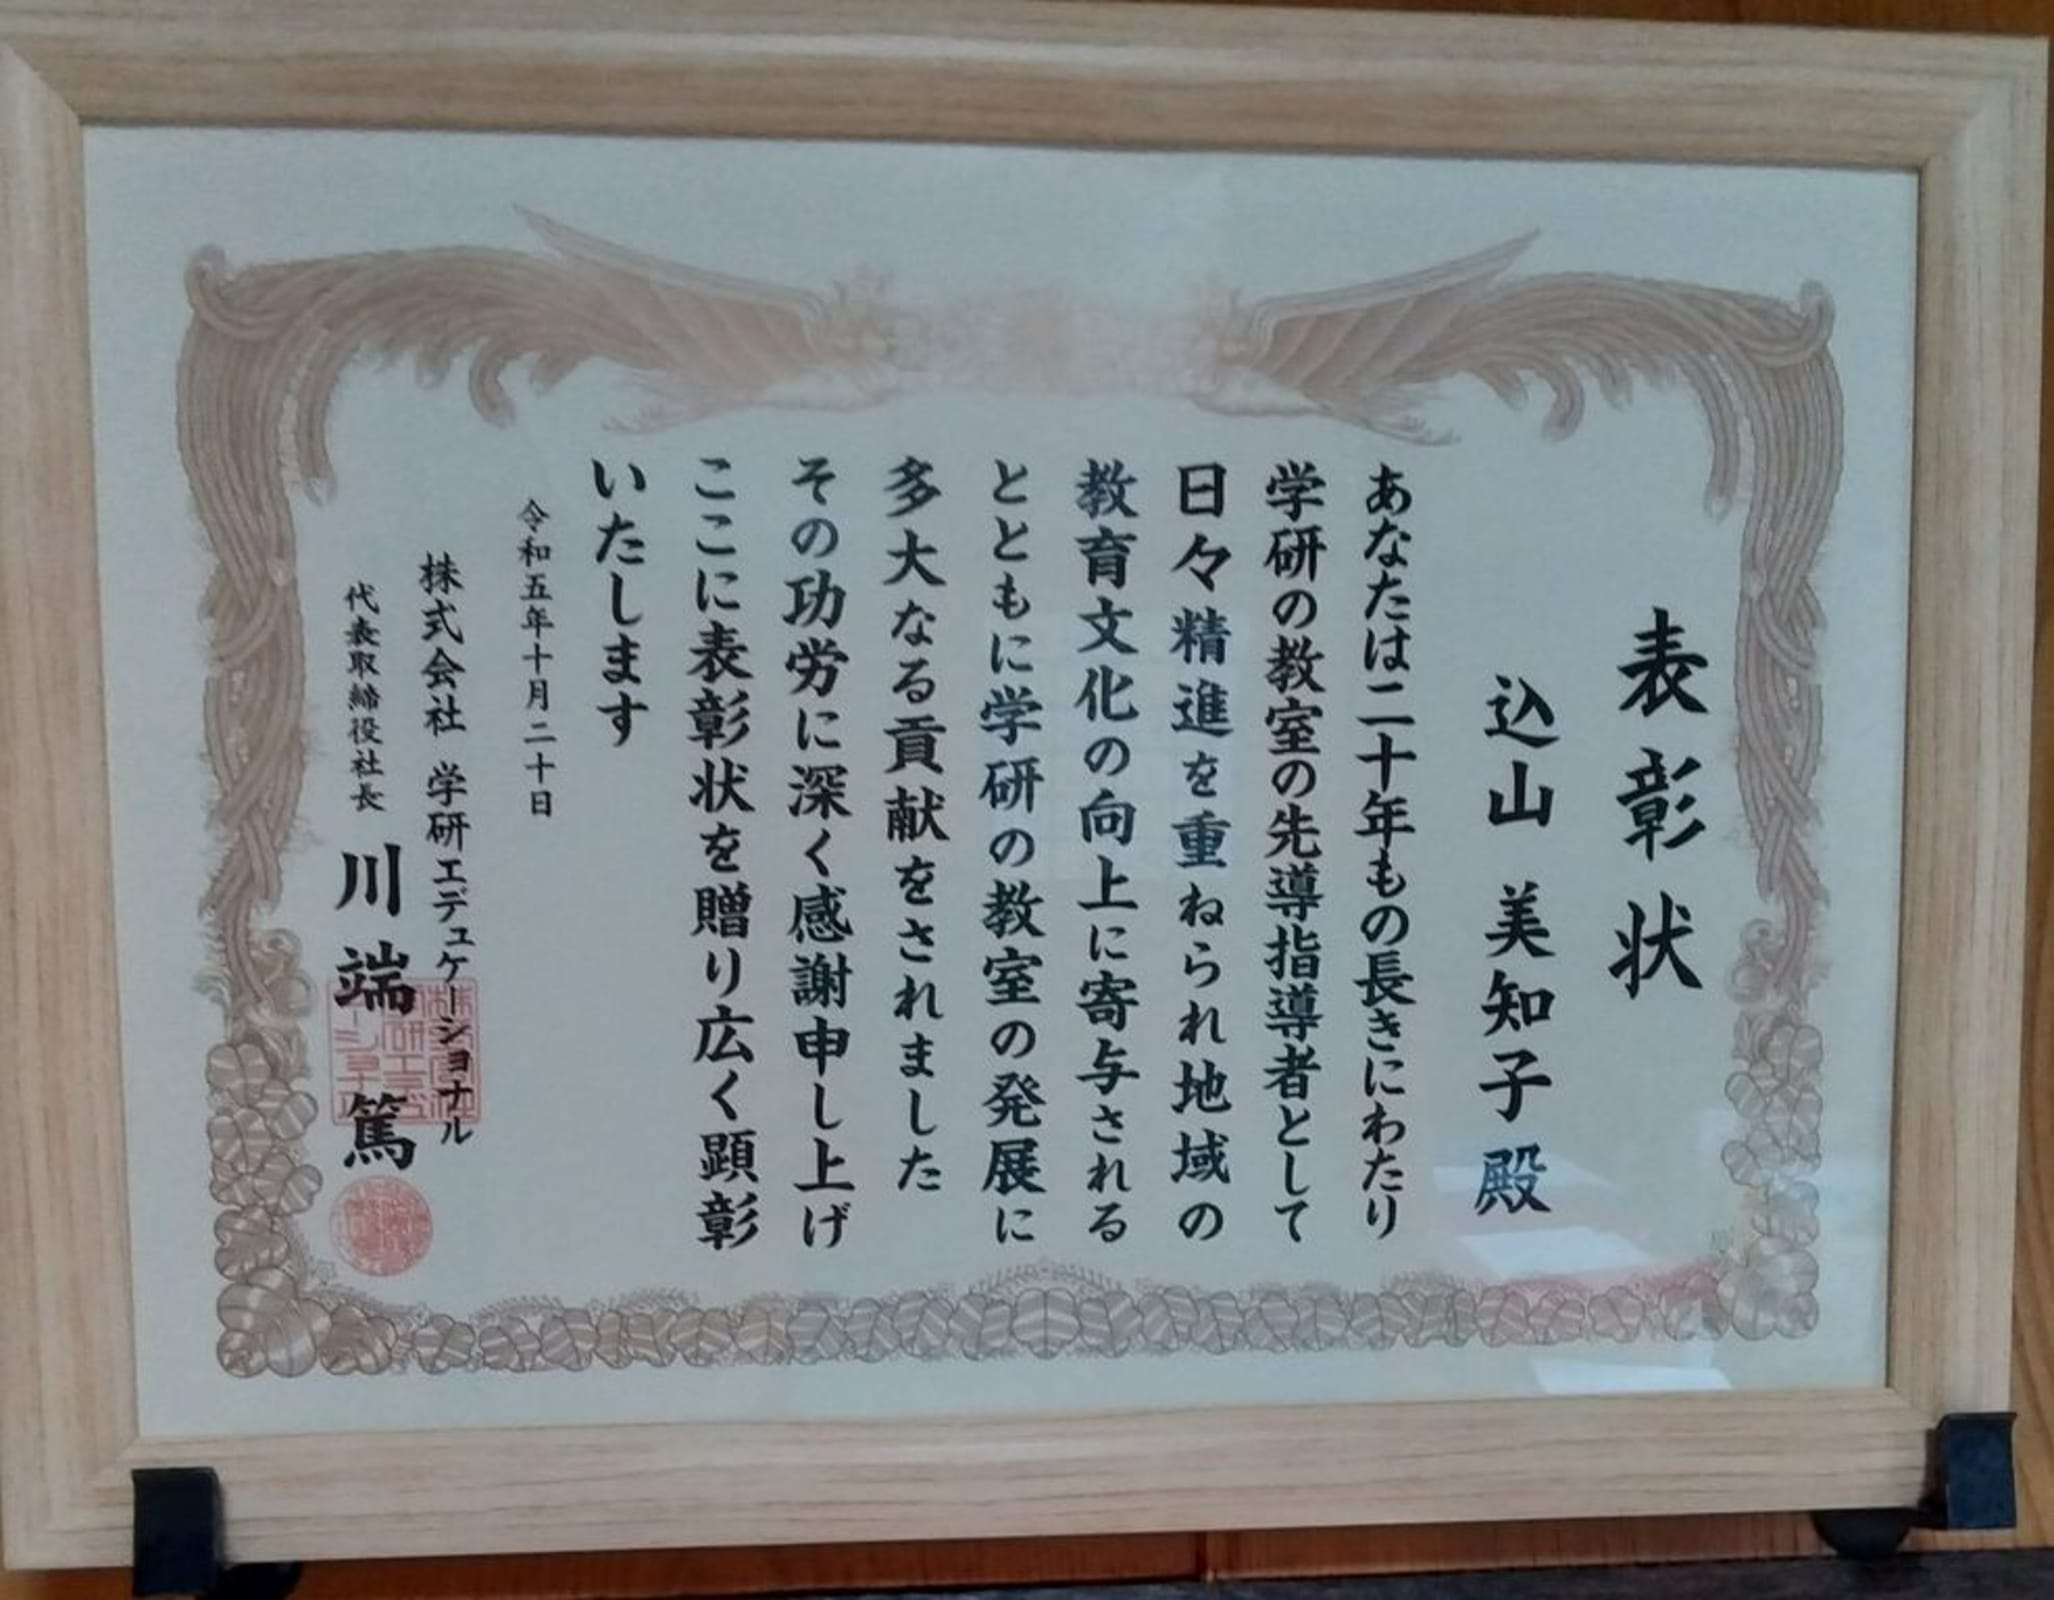 表彰状
込山 美知子 殿
あなたは二十年もの長きにわたり
学研の教室の先導指導者として
日々精進を重ねられ地域の
教育文化の向上に寄与される
とともに学研の教室の発展に
多大なる貢献をされました
その功労に深く感謝申し上げ
ここに表彰状を贈り広く顕彰
いたします
令和五年十月二十日
株式会社 学研エデュケーショナル
代表取締役社長 川端 篤